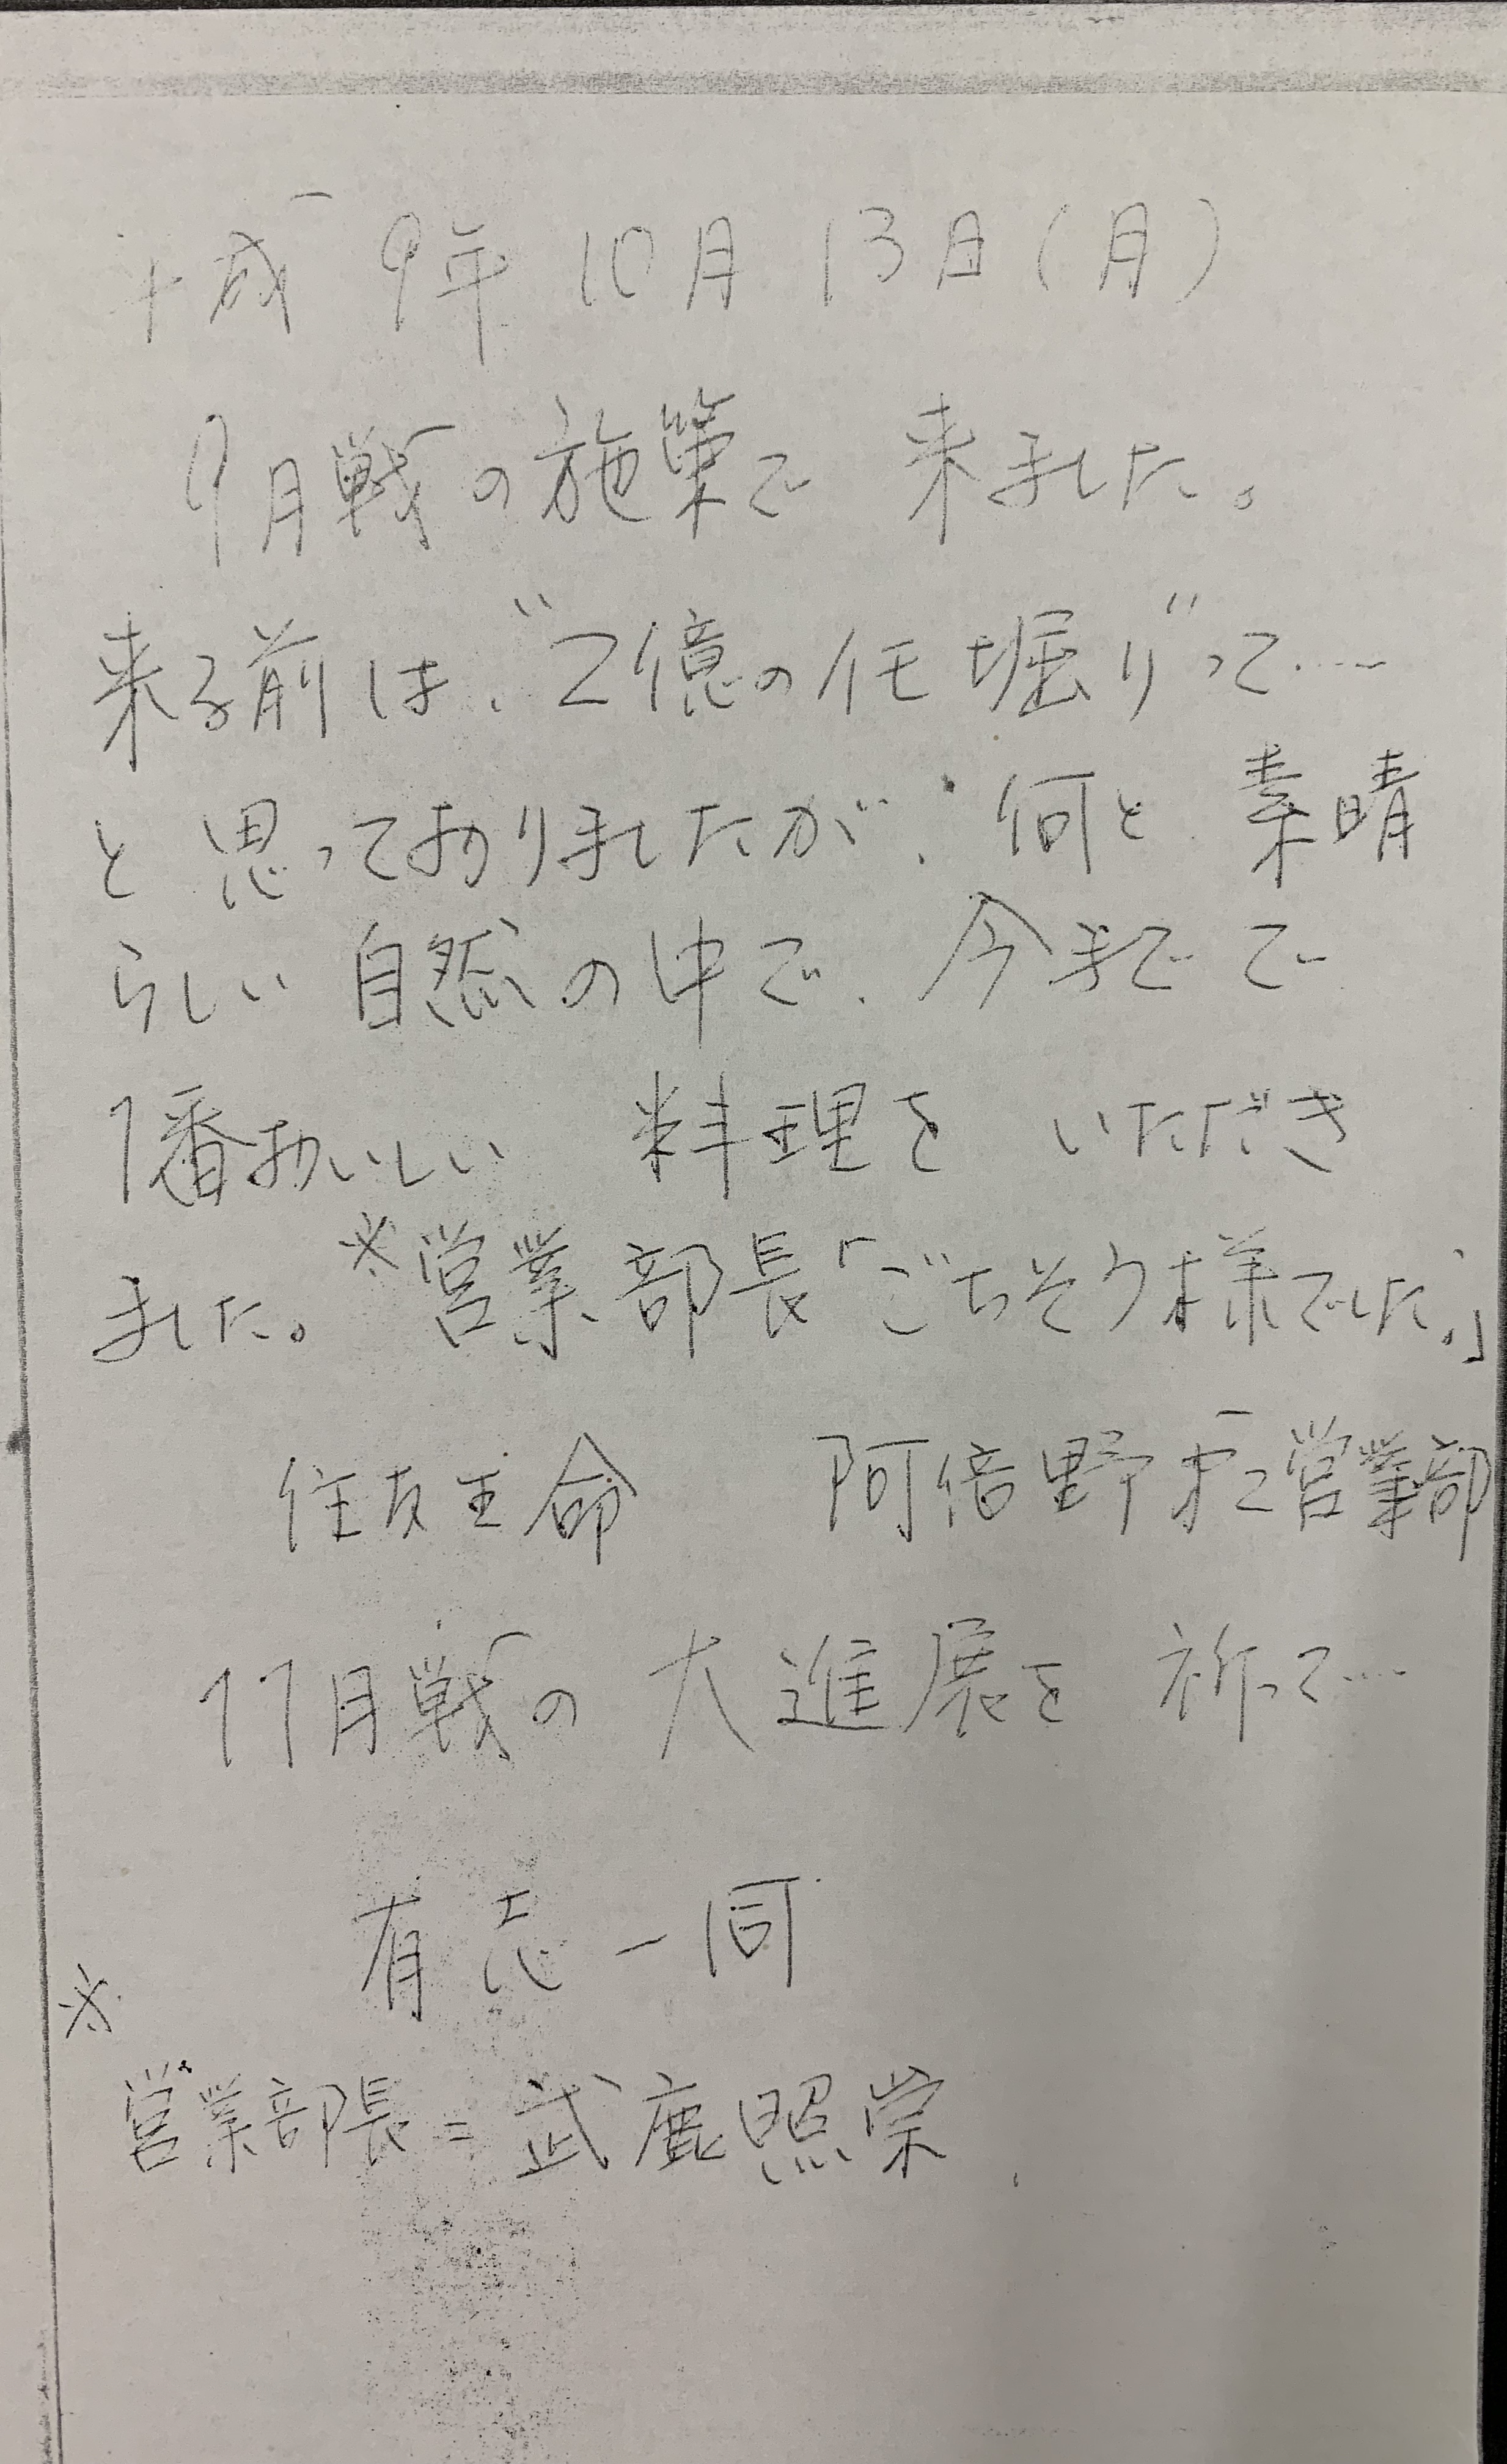 平成9年10月13日(月)
9月戦の施策で 来ました。
来る前は、“2億の化堀り”って‥‥
と思っておりましたが、何と 素晴
らしい 自然の中で、今までで
1番おいしい 料理を いただき
ました。※営業部長「ごちそう様でした。」
住友生命 阿倍野第二営業部
11月戦の 大進展を 祈って‥‥
有志一同
※
営業部長=武鹿照栄